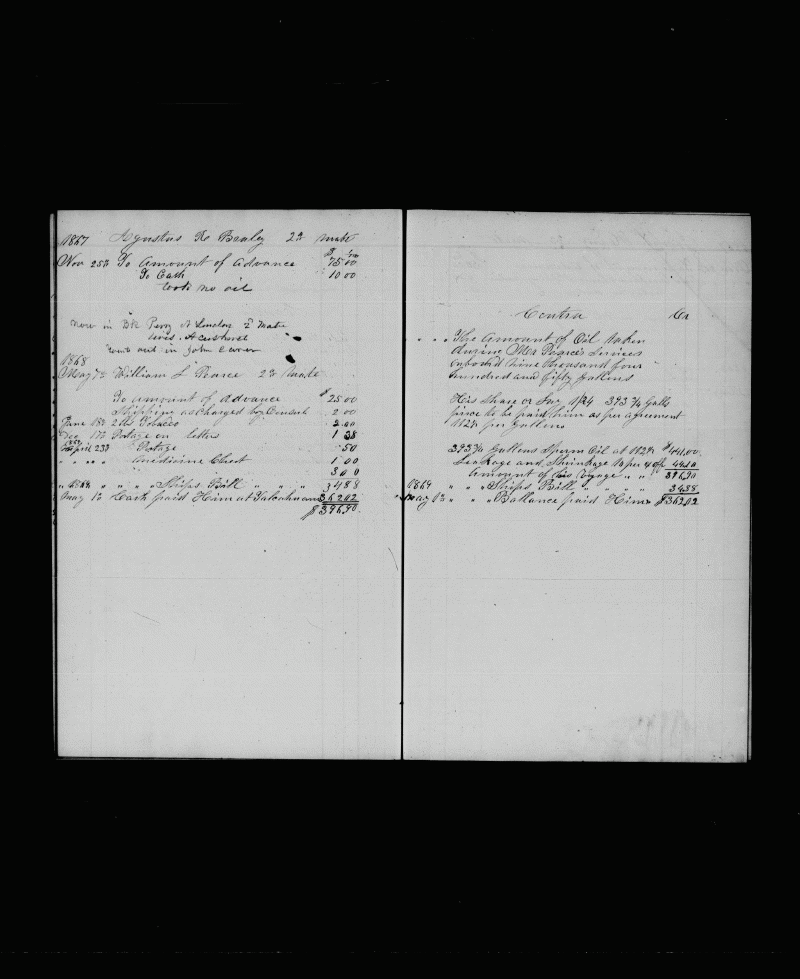 1867 Agustus R Braley 2d mate
Nov 25th To Amount of Advance 75.00
To Cash 10 00
took no oil
Now in Bk Perry 2d Mate
went out in John
1868
May 7th William L Pearce 2d Mate
To amount of Advance $25 00
Shipping as charged by Consul 2 00
June 18th 2 lbs Tobacco 2.00
Dec 17th Postage on letters 1 38
April 23d Postage 50
" " " " Medicine Chest 1 00
" 3 00
" " " " Ships Bill " " " 3488
May 13 Cash paid Him at Talcahuano 36202
$396.90
Contra Cr
" " " The Amount of Oil taken
during Mr Pearce's Services
onboard Nine thousand four
hundred and fifty gallons
His Share or Lay 1/24 393 3/4 Galls
price to be paid him as per agreement
per gallons
393 3/4 Gallons Sperm Oil at $441.00
Leakage and Shrinkage 10 per c off 44.10
Amount of his Voyage " " 396.90
1869 " " " Ships Bill " " " " 34.88
May 13 " " " Ballance paid Him $362.02